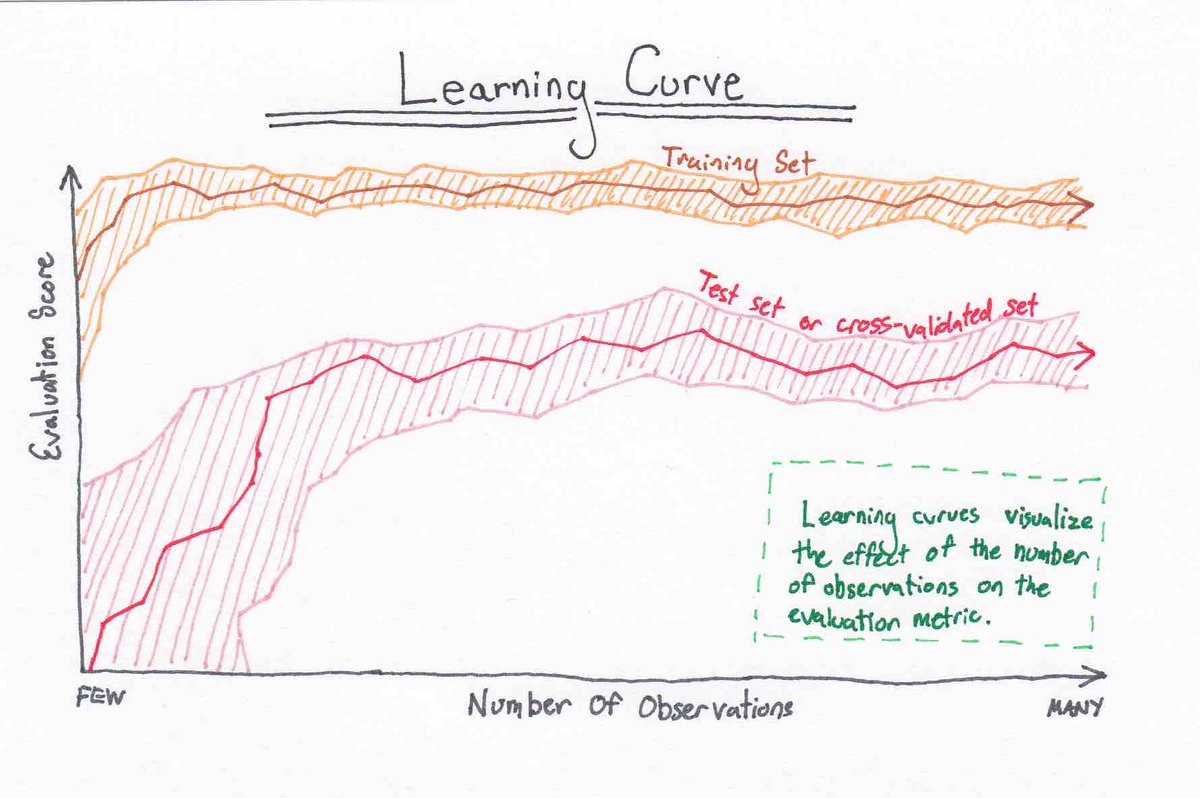 Learning Curve
Training Set
Test set or cross-validated set
Evaluation Score
Learning curves visualize
the effect of the number
of observations on the
evaluation metric.
FEW
Number Of Observations
MANY